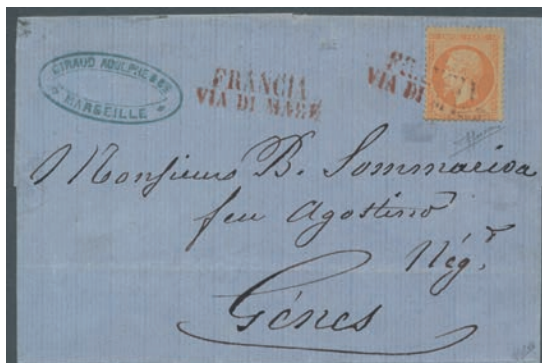 GIRAUD ADOLPHE &
MARSEILLE
FRANCIA
VIA DI MARE
VIA DI
Monsieur B. Sommariva
feu Agostino
Négt.
Gênes